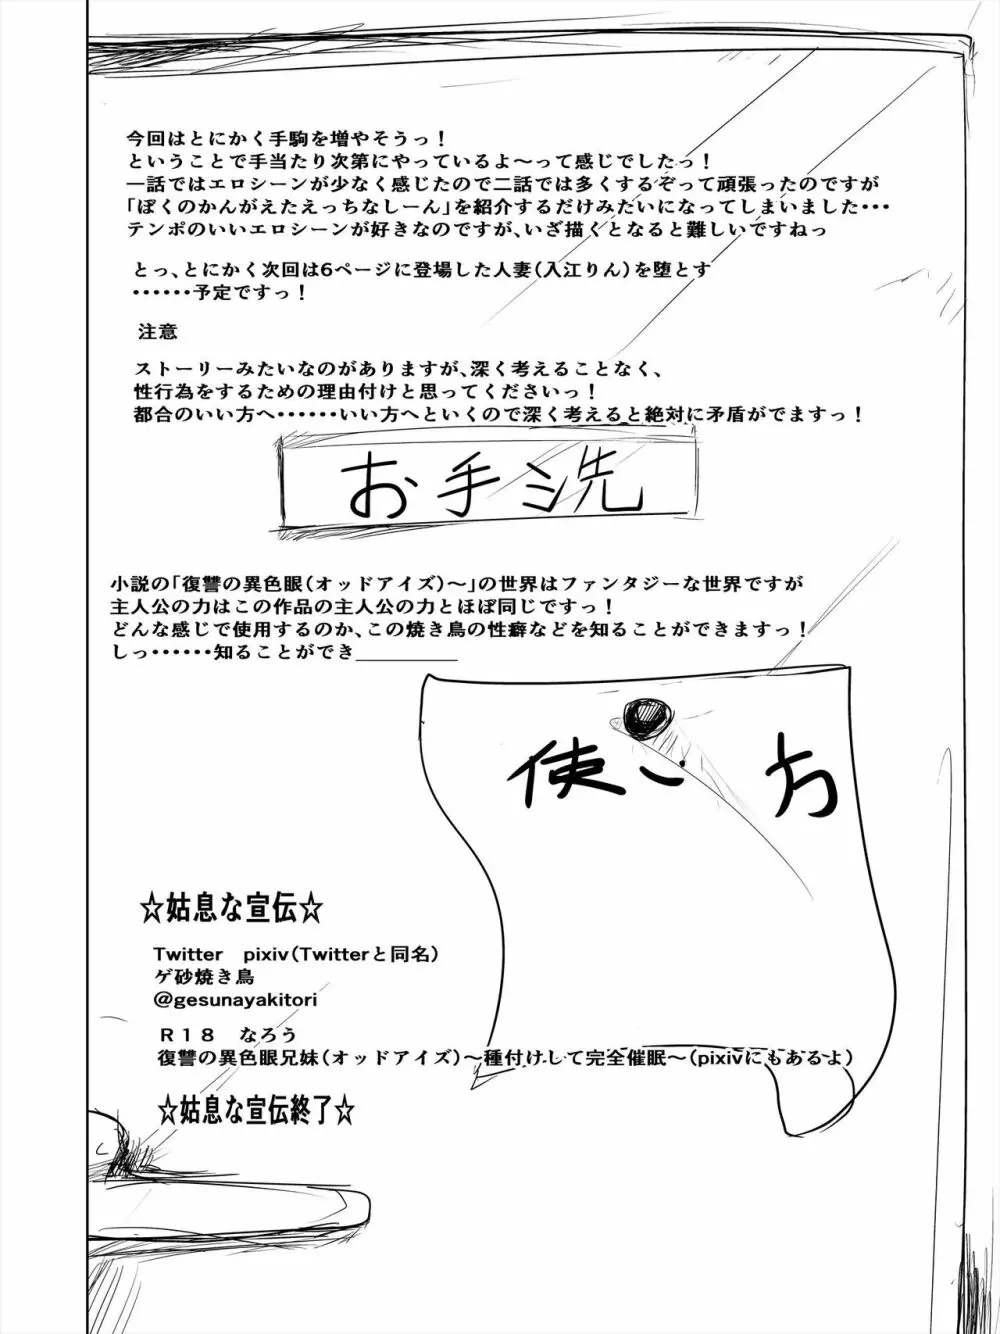 今回はとにかく手駒を増やそうっ！
ということで手当たり次第にやっているよ～って感じでしたっ！
一話ではエロシーンが少なく感じたので二話では多くするぞって頑張ったのですが
「ぼくのかんがえたえっちなしーん」を紹介するだけみたいになってしまいました・・・
テンポのいいエロシーンが好きなのですが、いざ描くとなると難しいですねっ
とっ、とにかく次回は6ページに登場した人妻（入江りん）を堕とす
・・・・・・予定ですっ！
注意
ストーリーみたいなのがありますが、深く考えることなく、
性行為をするための理由付けと思ってくださいっ！
都合のいい方へ・・・・・・いい方へといくので深く考えると絶対に矛盾がでますっ！
お手洗
小説の「復讐の異色眼（オッドアイズ）～」の世界はファンタジーな世界ですが
主人公の力はこの作品の主人公の力とほぼ同じですっ！
どんな感じで使用するのか、この焼き鳥の性癖などを知ることができますっ！
しっ・・・・・・知ることができ＿＿＿＿＿
使い方
☆姑息な宣伝☆
Twitter　pixiv（Twitterと同名）
ゲ砂焼き鳥
@gesunayakitori
R１８　なろう
復讐の異色眼兄妹（オッドアイズ）～種付けして完全催眠～（pixivにもあるよ）
☆姑息な宣伝終了☆